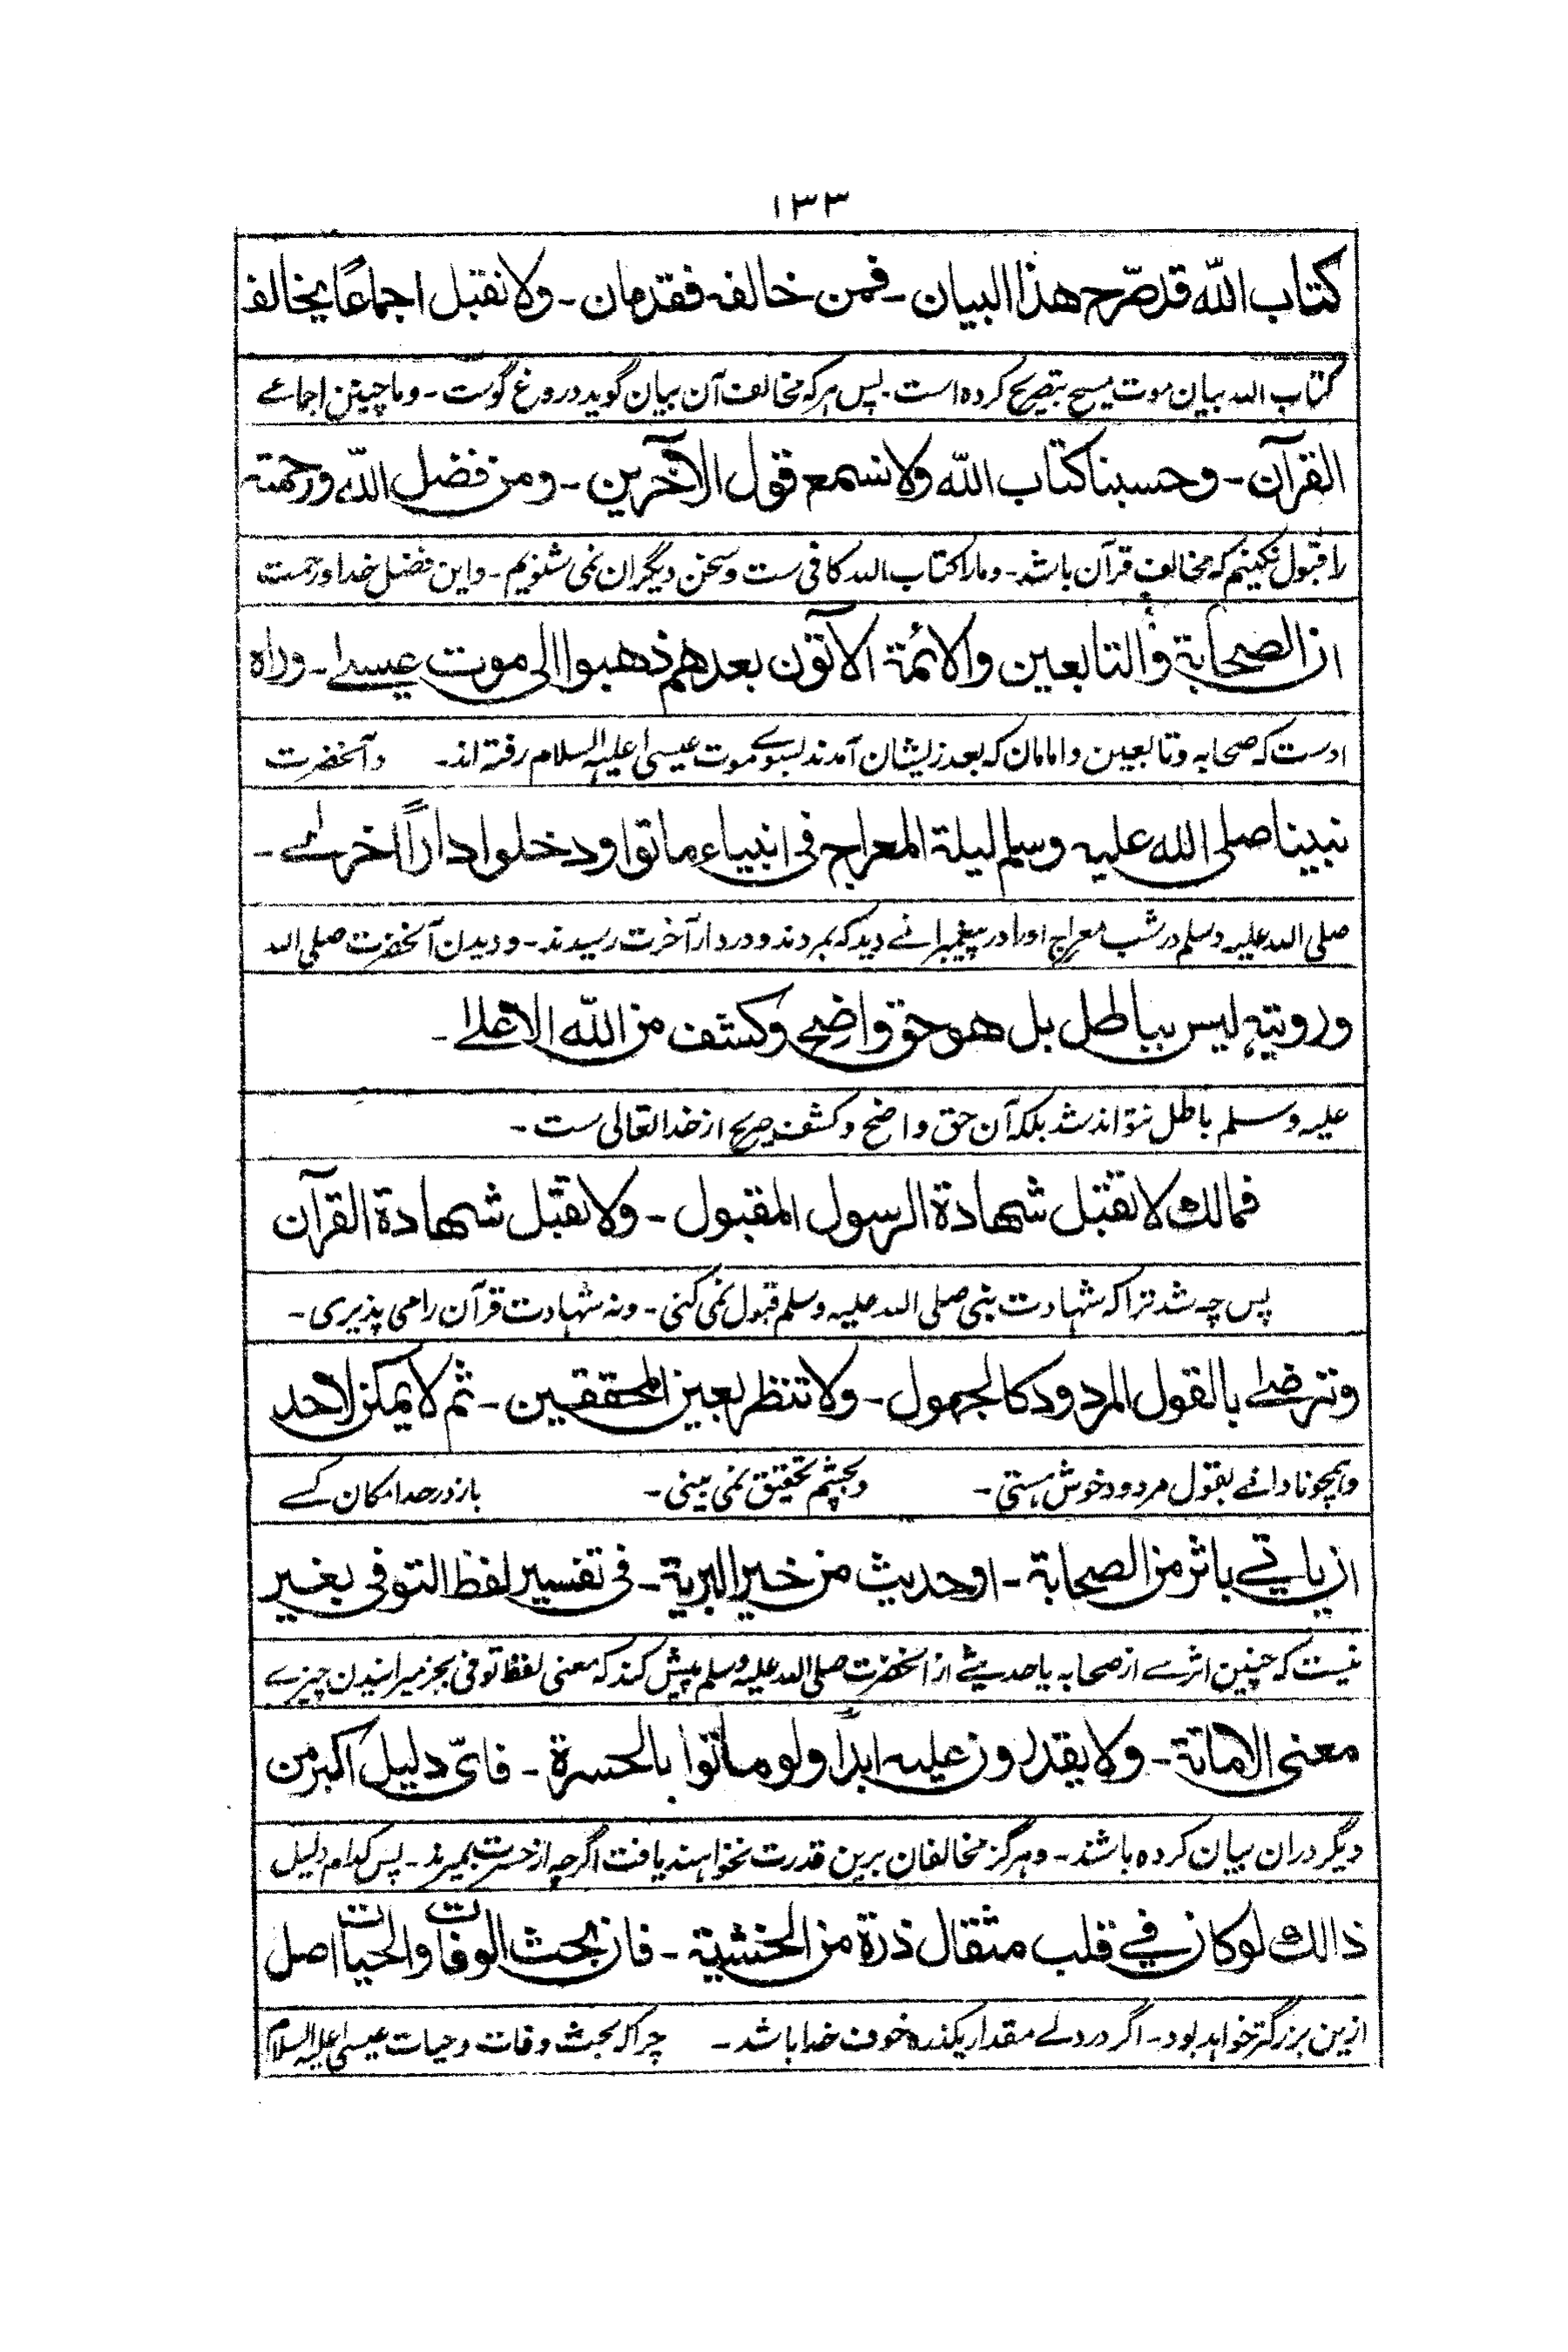 ۱۳۳
كتاب الله قد صرّح هذا البيان ـ فمن خالفه فقد مان ـ ولا نقبل اجماعًا يخالف
کتاب اللہ بیان موت مسیح بتصریح کردہ است ـ پس ہر کہ مخالف آن بیان گوید دروغ گوست ـ وما چنین اجماعے
القرآن ـ وحسبنا كتاب الله ولا نسمع قول الآخرين ـ ومن فضل الله ورحمته
را قبول نکنیم کہ مخالف قرآن باشد ـ و مارا کتاب اللہ کافی ست و سخن دیگران نمی شنویم ـ و این فضل خدا و رحمت
ان الصحابة والتابعين والائمة الآتون بعدهم ذهبوا الى موت عيسےٰ ـ وراٰه
اوست کہ صحابہ و تابعین و امامان کہ بعد زیشان آمدند بسوئے موت عیسیٰ علیہ السلام رفتہ اند ـ و آنحضرت
نبينا صلى الله عليه وسلم ليلة المعراج فى انبياء ماتوا ودخلوا دارًا اخرےٰ ـ
صلی اللہ علیہ وسلم در شب معراج اورا در پیغمبرانے دید کہ بمردند و در دار آخرت رسیدند ـ و دیدن آنحضرت صلی اللہ
ورويته ليس بباطل بل هو حق واضح وكشف من الله الاعلےٰ ـ
علیہ وسلم باطل نتواند شد بلکہ آن حق واضح و کشف صریح از خدا تعالیٰ ست ـ
فمالك لا تقبل شهادة الرسول المقبول ـ ولا تقبل شهادة القرآن
پس چہ شد ترا کہ شہادت نبی صلی اللہ علیہ وسلم قبول نمی کنی ـ و نہ شہادت قرآن را می پذیری ـ
وترضےٰ بالقول المردود كالجهول ـ ولا تنظر بعين المحققين ـ ثم لا يمكن لاحد
و ہمچو نادانے بقول مردود خوش ہستی ـ و بچشم تحقیق نمی بینی ـ باز در حد امکان کسے
ان ياتے باثر من الصحابة ـ او حديث من خير البرية ـ فى تفسير لفظ التوفى بغير
نیست کہ چنین اثرے از صحابہ یا حدیثے از آنحضرت صلی اللہ علیہ وسلم پیش کند کہ معنی لفظ توفی بجز میرانیدن چیزے
معنى الاماتة ـ ولا يقدرون عليه ابدًا ولو ماتوا بالحسرة ـ فاىّ دليل اكبر من
دیگر دران بیان کردہ باشند ـ و ہرگز مخالفان برین قدرت نخواہند یافت اگرچہ از حسرت بمیرند ـ پس کدام دلیل
ذالك لو كان فے قلب مثقال ذرة من الخشية ـ فان بحث الوفات والحيات اصل
ازین بزرگتر خواہد بود ـ اگر در دلے مقدار یکذرہ خوف خدا باشد ـ چرا کہ بحث وفات و حیات عیسیٰ علیہ السلام